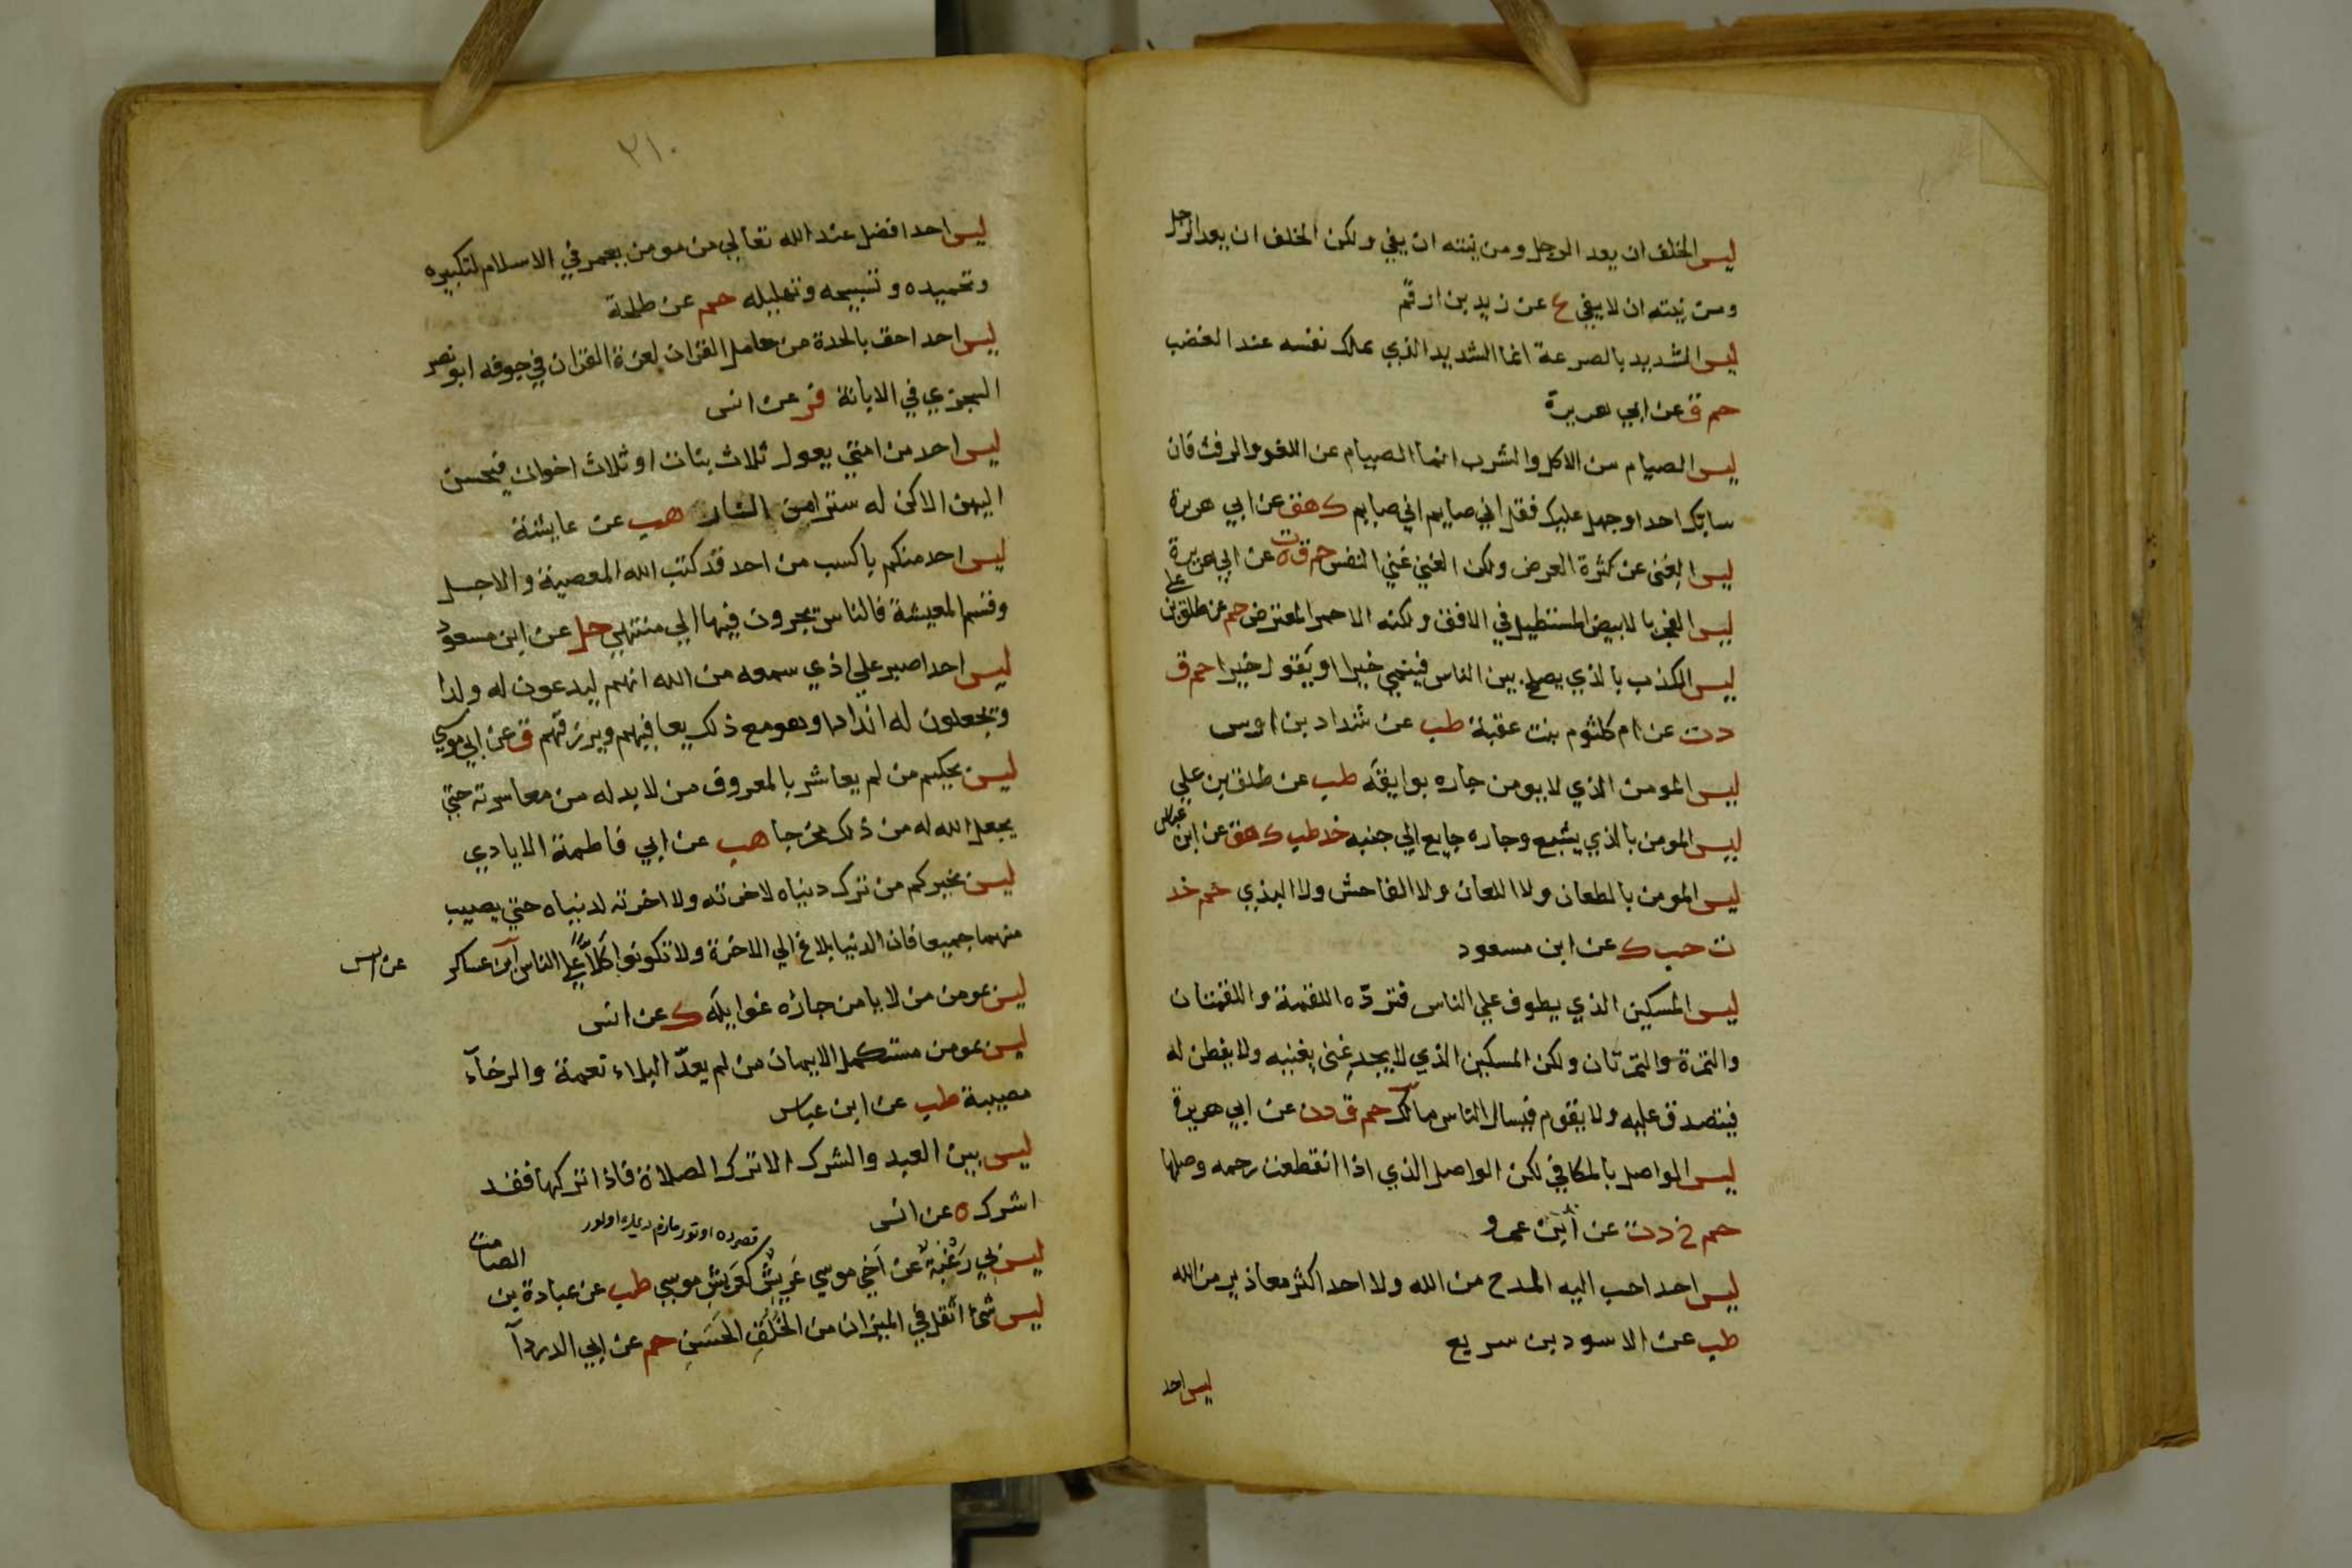 ليس الخلف ان يعد الرجل ومن نيته ان يفي ولكن الخلف ان يعد الرجل
ومن نيته ان لا يفي ع عن زيد بن ارقم
ليس الشديد بالصرعة انما الشديد الذي يملك نفسه عند الغضب
حم ق عن ابي هريرة
ليس الصيام من الاكل والشرب انما الصيام عن اللغو والرفث فان
سابك احد او جهل عليك فقل اني صايم اني صايم ك هق عن ابي هريرة
ليس الغنى عن كثرة العرض ولكن الغني غني النفس حم ق ت ه عن ابي هريرة
ليس الفجر بالابيض المستطيل في الافق ولكنه الاحمر المعترض حم عن طلق بن علي
ليس الكذب بالذي يصلح بين الناس فينمي خيرا او يقول خيرا حم ق
د ت عن ام كلثوم بنت عقبة طب عن شداد بن اوس
ليس المومن الذي لا يومن جاره بوايقه طب عن طلق بن علي
ليس المومن بالذي يشبع وجاره جايع الي جنبه خد طب ك هق عن ابن عباس
ليس المومن بالطعان ولا اللعان ولا الفاحش ولا البذي حم خد
ت حب ك عن ابن مسعود
ليس المسكين الذي يطوف علي الناس فتردّه اللقمة واللقمتان
والتمرة والتمرتان ولكن المسكين الذي لا يجد غنى يغنيه ولا يفطن له
فيتصدق عليه ولا يقوم فيسال الناس مالك حم ق د ن عن ابي هريرة
ليس الواصل بالمكافي لكن الواصل الذي اذا انقطعت رحمه وصلها
حم خ د ت عن ابن عمرو
ليس احد احب اليه المدح من الله ولا احد اكثر معاذير من الله
طب عن الاسود بن سريع
ليس احد
٢١٠
ليس احد افضل عند الله تعالي من مومن يعمر في الاسلام لتكبيره
وتحميده وتسبيحه وتهليله حم عن طلحة
ليس احد احق بالحدة من حامل القران لعزة القران في جوفه ابو نصر
السجزي في الابانة فر عن انس
ليس احد من امتي يعول ثلاث بنات او ثلاث اخوات فيحسن
اليهن الا كن له سترا من النار هب عن عايشة
ليس احد منكم باكسب من احد قد كتب الله المعصية والاجل
وقسم المعيشة فالناس يجرون فيها الي منتهي حل عن ابن مسعود
ليس احد اصبر علي اذي سمعه من الله انهم ليدعون له ولدا
وتجعلون له اندادا وهو مع ذلك يعافيهم ويرزقهم ق عن ابي موسي
ليس بحكيم من لم يعاشر بالمعروف من لا بد له من معاسرته حتي
يجعل الله له من ذلك مخرجا هب عن ابي فاطمة الايادي
ليس بخيركم من ترك دنياه لاخرته ولا اخرته لدنياه حتي يصيب
منهما جميعا فان الدنيا بلاغ الي الاخرة ولا تكونوا كلاًّ علي الناس ابن عساكر عن انس
ليس بمومن من لا يامن جاره غوايله ك عن انس
ليس بمومن مستكمل الايمان من لم يعدّ البلاء نعمة والرخآء
مصيبة طب عن ابن عباس
ليس بين العبد والشرك الا ترك الصلاة فاذا تركها فقد
اشرك ه عن انس
ليس بي رَغْبة عن اَخي موسي عَرِيشٌ كعَرِيشِ موسي طب عن عبادة بن الصامت
ليس شئ اثقل في الميزان من الخُلُقِ الحَسَنِ حم عن ابي الدردآ